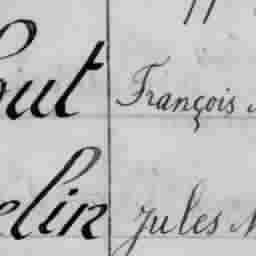 out François
elin Jules